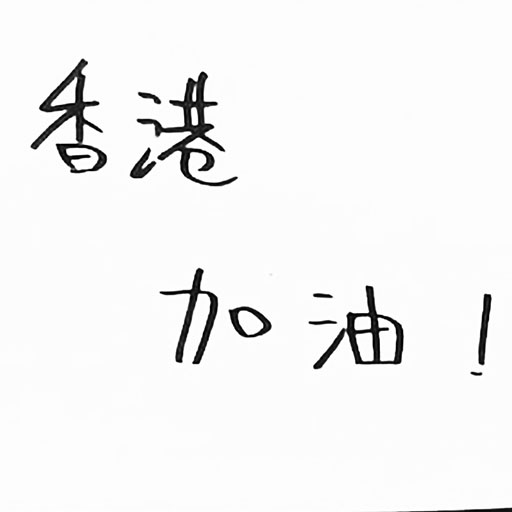 香港
加油！